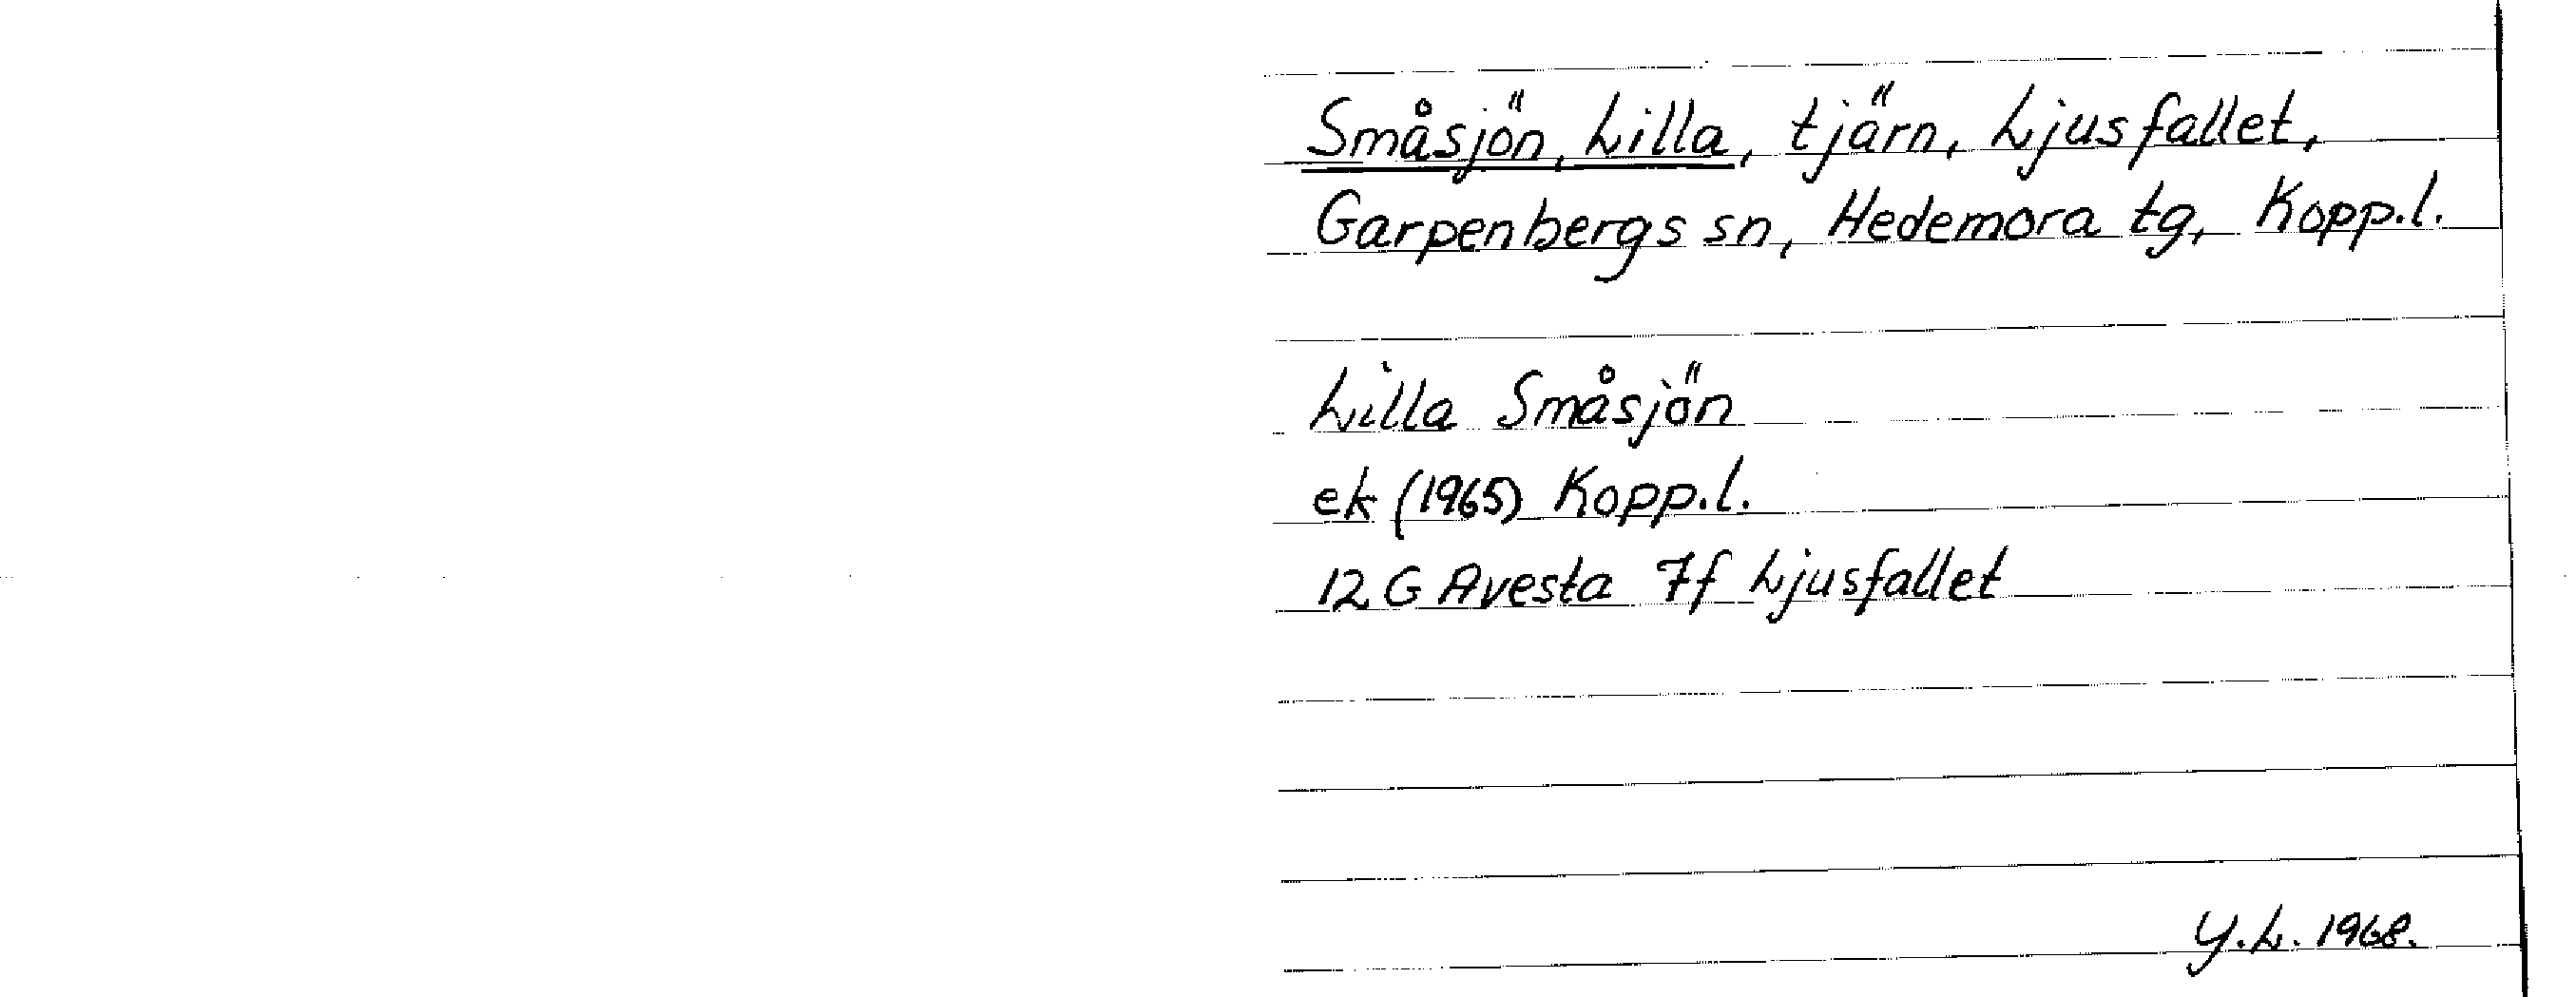 Småsjön, Lilla, tjärn, Ljusfallet,
Garpenbergs sn, Hedemora tg, Kopp.l.
Lilla Småsjön
ek (1965) Kopp.l.
12 G Avesta 7f Ljusfallet
Y.L. 1968.